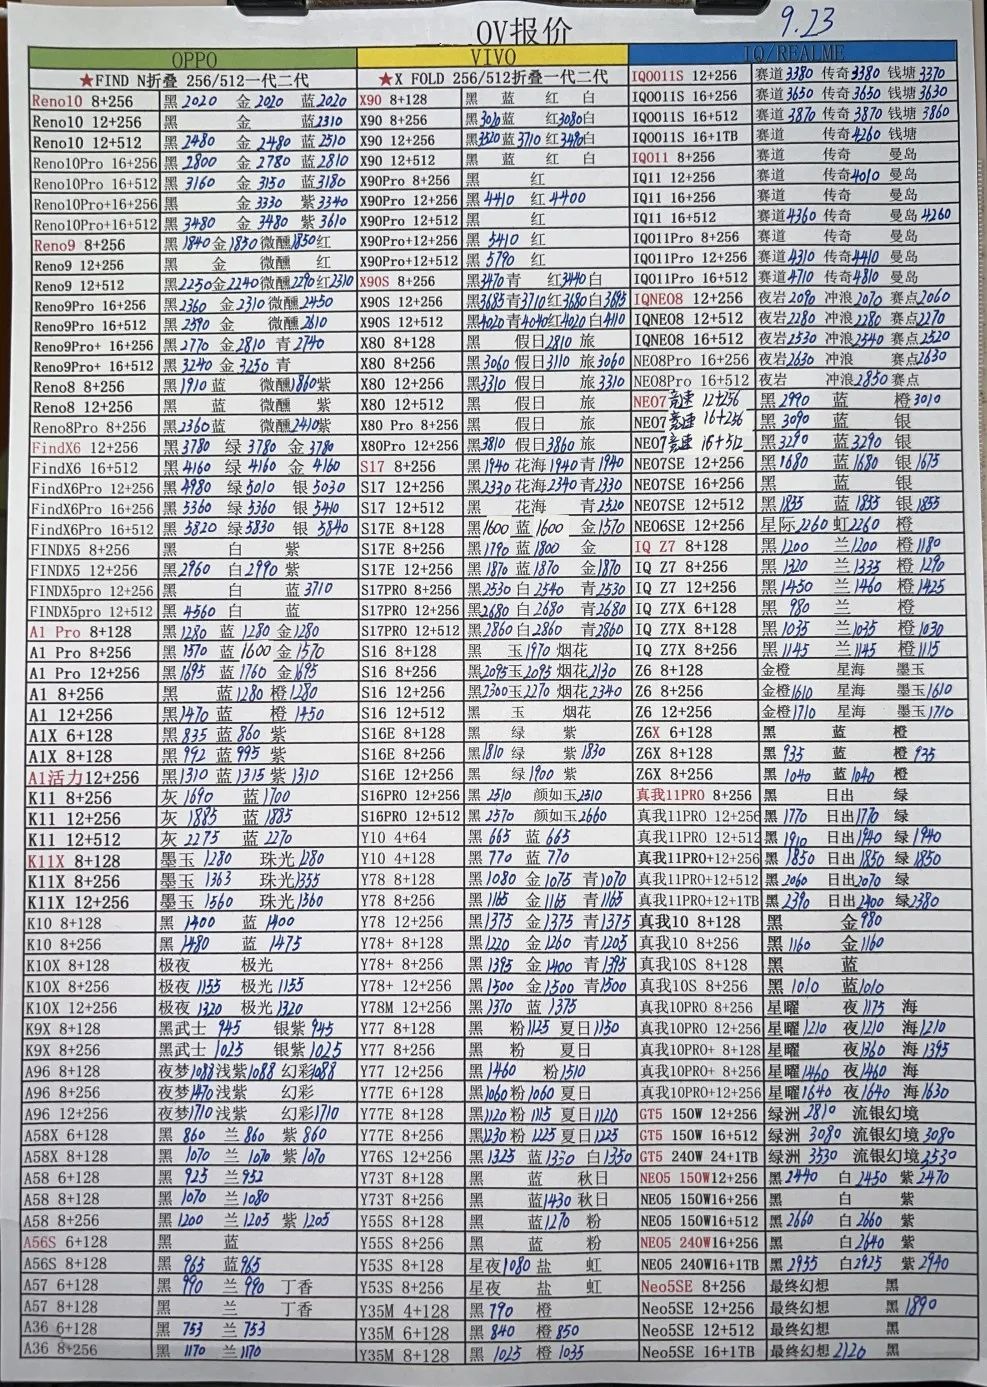 9.23
OV报价
OPPO VIVO IQ/REALME
★FIND N折叠 256/512一代二代 ★X FOLD 256/512折叠一代二代 IQOO11S 12+256 赛道3380 传奇3380 钱塘3370
Reno10 8+256 黑2020 金2020 蓝2020 X90 8+128 黑 蓝 红 白 IQOO11S 16+256 赛道3650 传奇3650 钱塘3630
Reno10 12+256 黑 金 蓝2310 X90 8+256 黑3020蓝 红3080白 IQOO11S 16+512 赛道3870 传奇3870 钱塘3860
Reno10 12+512 黑2480 金2480 蓝2510 X90 12+256 黑3520蓝3710红3490白 IQOO11S 16+1TB 赛道 传奇4260 钱塘
Reno10Pro 16+256 黑2800 金2780 蓝2810 X90 12+512 黑 蓝 红 白 IQO11 8+256 赛道 传奇 曼岛
Reno10Pro 16+512 黑3160 金3150 蓝3180 X90Pro 8+256 黑 红 IQ11 12+256 赛道 传奇4010 曼岛
Reno10Pro+16+256 黑 金3330 紫3340 X90Pro 12+256 黑4410 红4400 IQ11 16+256 赛道 传奇 曼岛
Reno10Pro+16+512 黑3480 金3480 紫3610 X90Pro 12+512 黑 红 IQ11 16+512 赛道4360 传奇 曼岛4260
Reno9 8+256 黑1840金1850微醺1850红 X90Pro+12+256 黑5410 红 IQO11Pro 8+256 赛道 传奇 曼岛
Reno9 12+256 黑 金 微醺 红 X90Pro+12+512 黑5790 红 IQO11Pro 12+256 赛道4310 传奇4410 曼岛
Reno9 12+512 黑2250金2240微醺2290红2310 X90S 8+256 黑3470青 红3440白 IQO11Pro 16+512 赛道4710 传奇4810 曼岛
Reno9Pro 16+256 黑2360 金2310微醺2450 X90S 12+256 黑3685青3710红3680白3695 IQNEO8 12+256 夜岩2090 冲浪2070 赛点2060
Reno9Pro 16+512 黑2590 金 微醺2610 X90S 12+512 黑4020青4040红4020白4110 IQNEO8 12+512 夜岩2280 冲浪2280 赛点2270
Reno9Pro+ 16+256 黑2770 金2810 青2740 X80 8+128 黑 假日2810 旅 IQNEO8 16+512 夜岩2530 冲浪2540 赛点2520
Reno9Pro+ 16+512 黑3240 金3250 青 X80 8+256 黑3060 假日3110 旅3060 NEO8Pro 16+256 夜岩2630 冲浪 赛点2630
Reno8 8+256 黑1910 蓝 微醺1860紫 X80 12+256 黑3310 假日 旅3310 NEO8Pro 16+512 夜岩 冲浪2850 赛点
Reno8 12+256 黑 蓝 微醺 紫 X80 12+512 黑 假日 旅 NEO7 竞速 12+256 黑2990 蓝 橙3010
Reno8Pro 8+256 黑2360蓝 微醺2410紫 X80 Pro 8+256 黑 假日 旅 NEO7 竞速 16+256 黑3090 蓝 银
FindX6 12+256 黑3780 绿3780 金3780 X80Pro 12+256 黑3810 假日3860旅 NEO7 竞速 16+512 黑3290 蓝3290 银
FindX6 16+512 黑4160 绿4160 金4160 S17 8+256 黑1940 花海1940青1940 NEO7SE 12+256 黑1680 蓝1680 银1675
FindX6Pro 12+256 黑4980 绿5010 银5030 S17 12+256 黑2330花海2340青2330 NEO7SE 16+256 黑 蓝 银
FindX6Pro 16+256 黑5360 绿5360 银5410 S17 12+512 黑 花海 青2520 NEO7SE 12+512 黑1855 蓝1855 银1855
FindX6Pro 16+512 黑5820 绿5830 银5840 S17E 8+128 黑1600 蓝1600 金1570 NEO6SE 12+256 星际2260虹2260 橙
FINDX5 8+256 黑 白 紫 S17E 8+256 黑1790蓝1800 金 IQ Z7 8+128 黑1200 兰1200 橙1180
FINDX5 12+256 黑2960 白2990 紫 S17E 12+256 黑1870蓝1870 金1870 IQ Z7 8+256 黑1320 兰1335 橙1290
FINDX5pro 12+256 黑 白 蓝3710 S17PRO 8+256 黑2530白2540 青2530 IQ Z7 12+256 黑1450 兰1460 橙1425
FINDX5pro 12+512 黑4560 白 蓝 S17PRO 12+256 黑2680白2680 青2680 IQ Z7X 6+128 黑980 兰 橙
A1 Pro 8+128 黑1280 蓝1280 金1280 S17PRO 12+512 黑2860白2860 青2860 IQ Z7X 8+128 黑1035 兰1035 橙1030
A1 Pro 8+256 黑1570 蓝1600 金1570 S16 8+128 黑 玉1970 烟花 IQ Z7X 8+256 黑1145 兰1145 橙1115
A1 Pro 12+256 黑1695 蓝1760 金1695 S16 8+256 黑2095玉2095 烟花2130 Z6 8+128 金橙 星海 墨玉
A1 8+256 黑 蓝1280 橙1280 S16 12+256 黑2300玉2270 烟花2340 Z6 8+256 金橙1610 星海 墨玉1610
A1 12+256 黑1470 蓝 橙1450 S16 12+512 黑 玉 烟花 Z6 12+256 金橙1710 星海 墨玉1710
A1X 6+128 黑835 蓝860 紫 S16E 8+128 黑 绿 紫 Z6X 6+128 黑 蓝 橙
A1X 8+128 黑992 蓝995 紫 S16E 8+256 黑1810 绿 紫1830 Z6X 8+128 黑935 蓝 橙935
A1活力12+256 黑1310 蓝1315 紫1310 S16E 12+256 黑 绿1900 紫 Z6X 8+256 黑1040 蓝1040 橙
K11 8+256 灰1690 蓝1700 S16PRO 12+256 黑2510 颜如玉2510 真我11PRO 8+256 黑 日出 绿
K11 12+256 灰1885 蓝1885 S16PRO 12+512 黑2570 颜如玉2660 真我11PRO 12+256 黑1770 日出1770 绿
K11 12+512 灰2275 蓝2270 Y10 4+64 黑665 蓝665 真我11PRO 12+512 黑1910 日出1940 绿1940
K11X 8+128 墨玉1280 珠光1280 Y10 4+128 黑770 蓝770 真我11PRO+12+256 黑1850 日出1850 绿1850
K11X 8+256 墨玉1363 珠光1355 Y78 8+128 黑1080 金1075 青1070 真我11PRO+12+512 黑2060 日出2070 绿
K11X 12+256 墨玉1560 珠光1560 Y78 8+256 黑1165 金1165 青1165 真我11PRO+12+1TB 黑2390 日出2400 绿2380
K10 8+128 黑1400 蓝1400 Y78 12+256 黑1375 金1375 青1375 真我10 8+128 黑 金980
K10 8+256 黑1480 蓝1475 Y78+ 8+128 黑1220 金1260 青1205 真我10 8+256 黑1160 金1160
K10X 8+128 极夜 极光 Y78+ 8+256 黑1395 金1400 青1395 真我10S 8+128 黑 蓝
K10X 8+256 极夜1155 极光1155 Y78+ 12+256 黑1500 金1500 青1500 真我10S 8+256 黑1010 蓝1010
K10X 12+256 极夜1320 极光1320 Y78M 12+256 黑1370 蓝1375 真我10PRO 8+256 星曜 夜1175 海
K9X 8+128 黑武士945 银紫945 Y77 8+128 黑 粉1125 夏日1150 真我10PRO 12+256 星曜1210 夜1210 海1210
K9X 8+256 黑武士1025 银紫1025 Y77 8+256 黑 粉 夏日 真我10PRO+ 8+128 星曜 夜1360 海1395
A96 8+128 夜梦1088浅紫1088 幻彩1088 Y77 12+256 黑1460 粉1510 真我10PRO+ 8+256 星曜1460 夜1460 海
A96 8+256 夜梦1470浅紫 幻彩 Y77E 6+128 黑1060粉1060 夏日 真我10PRO+12+256 星曜1640 夜1640 海1630
A96 12+256 夜梦1710浅紫 幻彩1710 Y77E 8+128 黑1120粉1115 夏日1120 GT5 150W 12+256 绿洲2810 流银幻境
A58X 6+128 黑860 兰860 紫860 Y77E 8+256 黑1230粉1225 夏日1225 GT5 150W 16+512 绿洲3080 流银幻境3080
A58X 8+128 黑1070 兰1070 紫1070 Y76S 12+256 黑1325 蓝1330 白1350 GT5 240W 24+1TB 绿洲3530 流银幻境3530
A58 6+128 黑925 兰952 Y73T 8+128 黑 蓝 秋日 NEO5 150W12+256 黑2440 白2450 紫2470
A58 8+128 黑1070 兰1080 Y73T 8+256 黑 蓝1430 秋日 NEO5 150W16+256 黑 白 紫
A58 8+256 黑1200 兰1205 紫1205 Y55S 8+128 黑 蓝1270 粉 NEO5 150W16+512 黑2660 白2660 紫
A56S 6+128 黑 蓝 Y55S 8+256 黑 蓝 粉 NEO5 240W16+256 黑 白2640 紫
A56S 8+128 黑965 蓝965 Y53S 8+128 星夜1080 盐 虹 NEO5 240W16+1TB 黑2955 白2925 紫2940
A57 6+128 黑990 兰990 丁香 Y53S 8+256 星夜 盐 虹 Neo5SE 8+256 最终幻想 黑
A57 8+128 黑 兰 丁香 Y35M 4+128 黑790 橙 Neo5SE 12+256 最终幻想 黑1890
A36 6+128 黑753 兰753 Y35M 6+128 黑840 橙850 Neo5SE 12+512 最终幻想 黑
A36 8+256 黑1170 兰1170 Y35M 8+128 黑1025 橙1035 Neo5SE 16+1TB 最终幻想2120 黑